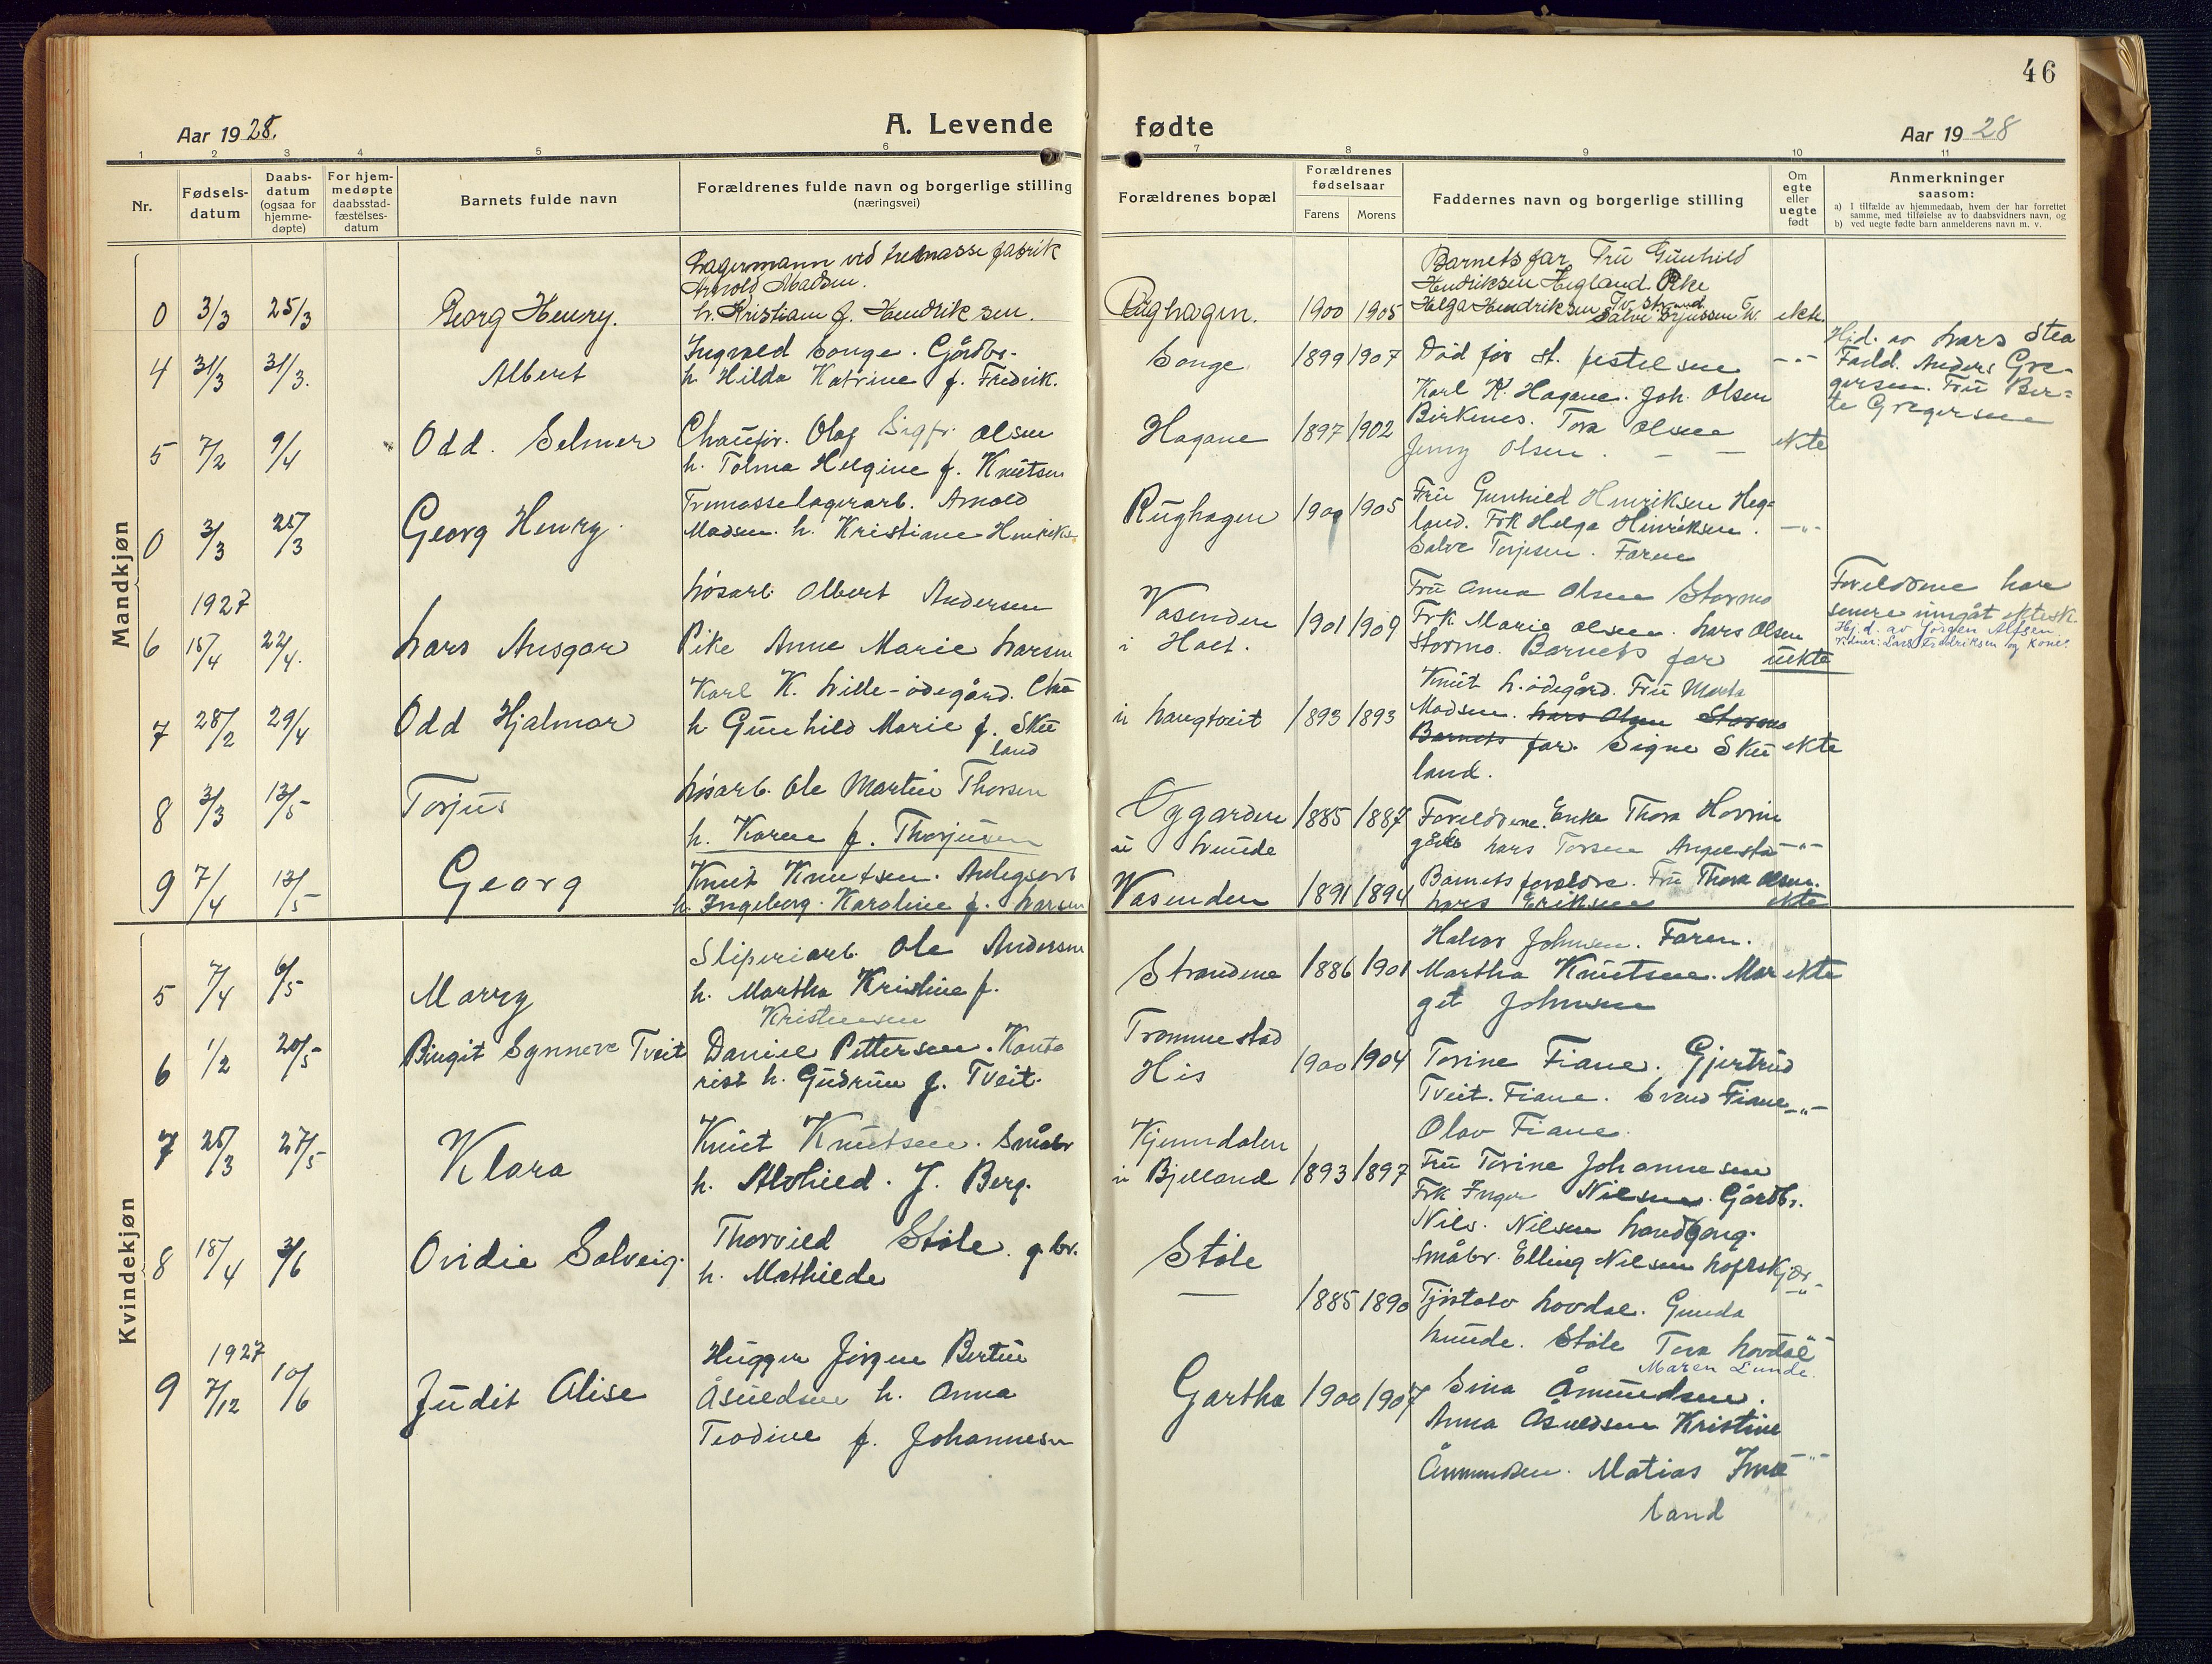 46
Aar 1928.
A. Levende
fødte
Aar 1928
1 2 3 4 5 6 7 8 9 10 11
Nr.
Fødsels-
datum
Daabs-
datum
(ogsaa for
hjemme-
døpte)
For hjem-
medøpte
daabsstad-
fæstelses-
datum
Barnets fulde navn
Forældrenes fulde navn og borgerlige stilling
(næringsvei)
Forældrenes bopæl
Forældrenes
fødselsaar
Farens Morens
Faddernes navn og borgerlige stilling
Om
egte
eller
uegte
født
Anmerkninger
saasom:
a) I tilfælde av hjemmedaab, hvem der har forrettet
samme, med tilføielse av to daabsvidners navn, og
b) ved uegte fødte barn anmelderens navn m. v.
Mandkjøn
0 3/3 25/3 Georg Henry.
Lagermann ved tremasse fabrik
Arnold Madsen.
h. Kristiane f. Hendriksen.
Rughagen. 1900 1905
Barnets far Fru Gunhild
Hendriksen Hegland. Pike
Helga Hendriksen
ekte
4 31/3 31/3. Albert
Ingvald Songe. Gårdbr.
h Hilda Katrine f. Fredrik.
Songe 1899 1907
Død før st. festelsen
-"-
Hjd. av Lars Stea
Fadd. Anders Gre-
gersen. Fru Ber=
te Gregersen
5 7/2 9/4 Odd. Selmer
Chaufør. Olaf Sigfr. Olsen
h. Tolma Helgine f. Knutsen
Hagane 1897 1902
Karl K. Hagane. Joh. Olsen
Birkenes. Tora Olsen
Jenny Olsen. - -
ekte
0 3/3 25/3 Georg Henry.
Tremasselagerarb. Arnold
Madsen. h. Kristiane Henriks
Rughagen 1900 1905
Fru Gunhild Henriksen Heg=
land. Frk Helga Henriksen.
Salve Torjesen. Faren
-"-
1927
6 15/4 22/4. Lars Ansgar
Løsarb. Albert Andersen
Pike Anne Marie Larsen
Vasenden
i Holt. 1901 1909
Fru Anna Olsen Stormo
Frk. Marie Olsen. Lars Olsen
Stormo. Barnets far
uekte
Foreldrene har
senere inngåt ektesk.
Hj.d. av Jørgen Alfsen.
Vidner: Lars Fredriksen og kone.
7 28/2 29/4 Odd Hjalmar
Karl K. Lille-ødegård.
h Gunhild Marie f. Skei
land
i Langtveit 1893 1893
Knut L. ødegård. Fru Marta
Madsen. Lars Olsen Stormo
Barnets far. Signe Skei
land.
ekte
8 3/3 13/5 Torjus
Løsarb. Ole Martin Thorsen
h. Karen f. Thorjusen
Uggarden
i Lunde 1885 1887
Foreldrene. Enke Thora Hovin
Lars Torsen Angelstø
-"-
9 7/4 13/5 Georg
Knut Knutsen. Anlegsarb
h. Ingeborg. Karoline f. Larsen
Vasenden 1891 1894
Barnets foreldre. Fru Thora Olsen.
Lars Eriksen
ekte
Kvindekjøn
5 7/4 6/5 Marry
Sliperiarb. Ole Andersen
h. Martha Kristine f.
Kristensen
Strandene 1886 1901
Halvor Johnsen. Faren.
Martha Knutsen. Mar
git Johnsen
ekte
6 1/2 20/5 Birgit Synnøve Tveit
Daniel Pettersen. Konto
rist h. Gudrun f. Tveit.
Trommestad
His 1900 1904
Torine Fiane. Gjertrud
Tveit. Fiane. Svend Fiane
Olav Fiane.
-"-
7 25/3 27/5 Klara
Knut Knutsen. Småbr
h. Alvhild. f. Berg.
Kjenndalen
i Bjelland 1893 1897
Fru Torine Johannesen
Frk Inger Nilsen. Gårdbr.
Nils. Nilsen Landgang.
Småbr. Elling Nilsen Loftskjær
-"-
8 18/4 3/6 Ovidie Solveig.
Thorvild Støle. g.br.
h. Mathilde
Støle 1885 1890
Tjøstolv Lovdal. Gunda
Lunde. Støle Tora Lovdal
Maren Lunde.
-"-
1927
9 7/12 10/6 Judit Alise
Hugger Jørgen Bertin
Åsuldsen h. Anna
Teodine f. Johannesen
Gartha 1900 1907
Sina Åmundsen.
Anna Åsuldsen Kristine
Åmundsen. Matias
land
-"-